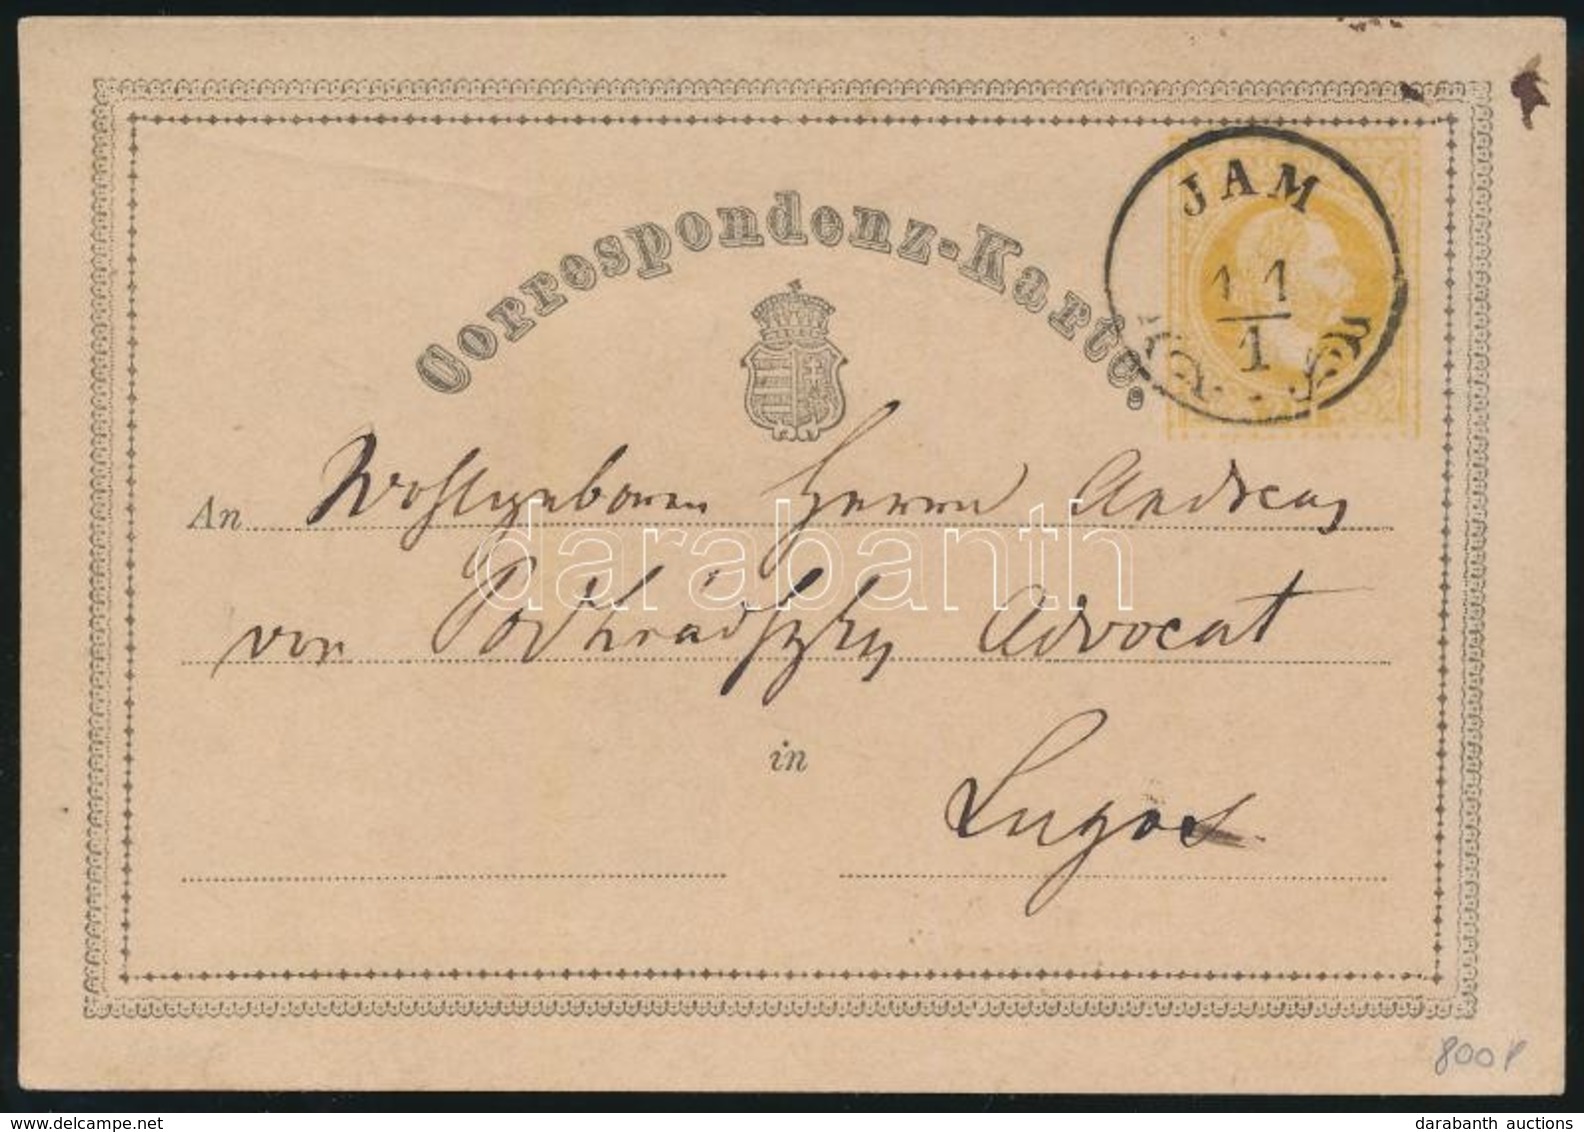 Correspondenz-Karte.
JAM
11
1
An Wohlgeboren Herrn Andreas
von Podhrádszky Advocat
in
Lugos
800 P
darabanth
delcampe.net
darabanth auctions